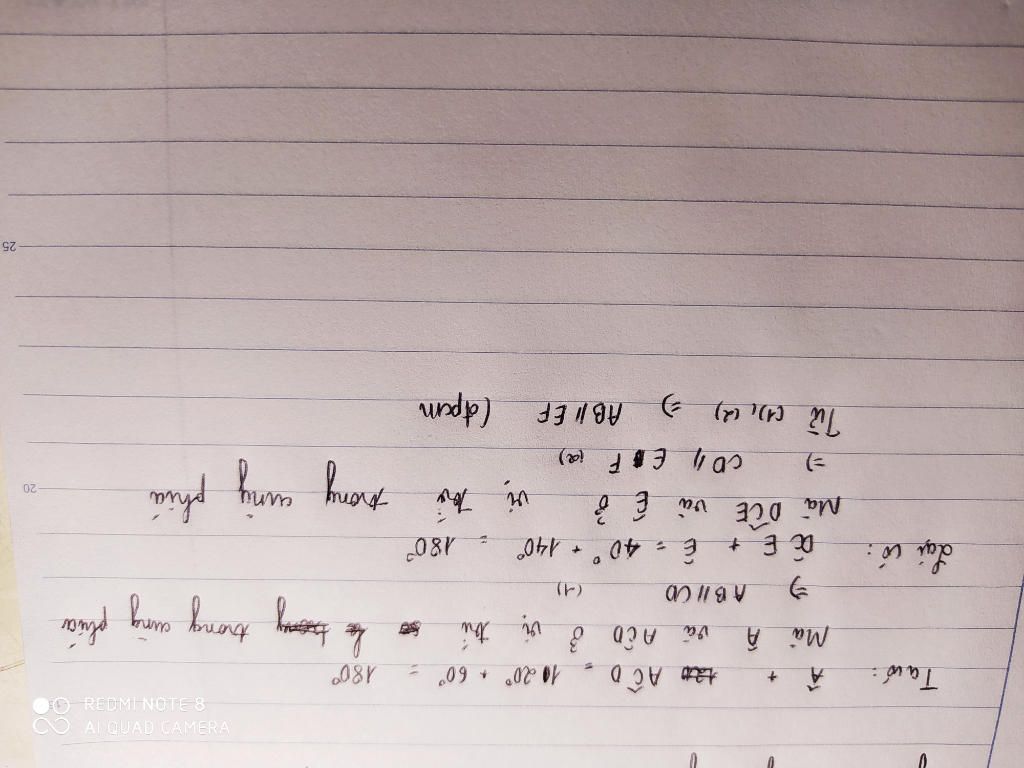 Ta có: Â + AĈD = 120° + 60° = 180°
Mà Â và AĈD ở vị trí trong cùng phía
=> AB // CD (1)
Lại có: DĈE + Ê = 40° + 140° = 180°
Mà DĈE và Ê ở vị trí trong cùng phía
=> CD // EF (2)
Từ (1), (2) => AB // EF (đpcm
20
25
REDMI NOTE 8
AI QUAD CAMERA